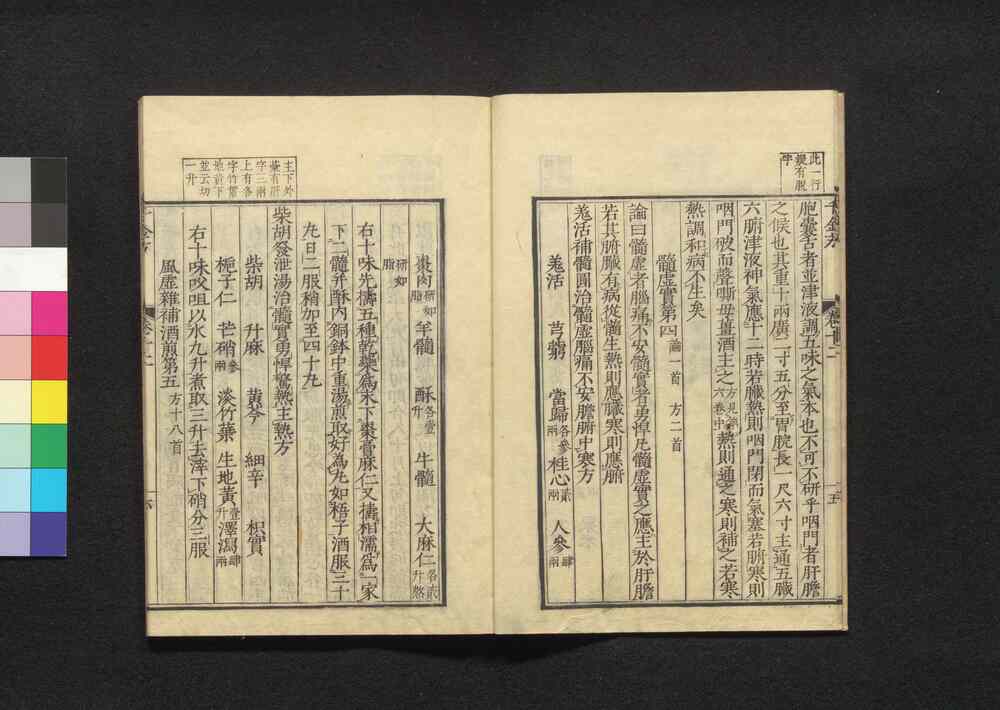 此一行
疑有脫
字
胞囊舌者並津液調五味之氣本也不可不研乎咽門者肝膽
之候也其重十兩廣二寸五分至胃脘長一尺六寸主通五臟
六腑津液神氣應十二時若臟熱則咽門閉而氣塞若腑寒則
咽門破而聲嘶母薑酒主之方見第六卷中熱則通之寒則補之若寒
熱調和病不生矣
髓虛實第四論一首 方二首
論曰髓虛者腦痛不安髓實者勇悍凡髓虛實之應主於肝膽
若其腑臟有病從髓生熱則應臟寒則應腑
羌活補髓圓治髓虛腦痛不安膽腑中寒方
羌活 芎藭 當歸各參兩 桂心貳兩 人參肆兩
棗肉研如脂 羊髓 酥各壹升 牛髓 大麻仁各貳升熬
研如脂
右十味先擣五種乾藥為末下棗膏麻仁又擣相濡為一家
下二髓并酥內銅鉢中重湯煎取好為丸如梧子酒服三十
丸日二服稍加至四十丸
柴胡發泄湯治髓實勇悍驚熱主熱方
柴胡 升麻 黃芩 細辛 枳實
梔子仁 芒硝各參兩 淡竹葉 生地黃各壹升 澤瀉肆兩
右十味㕮咀以水九升煮取三升去滓下硝分三服
風虛雜補酒煎第五方十八首
主下外
臺有肝
字三兩
上有各
字竹葉
地黃下
並云切
一升